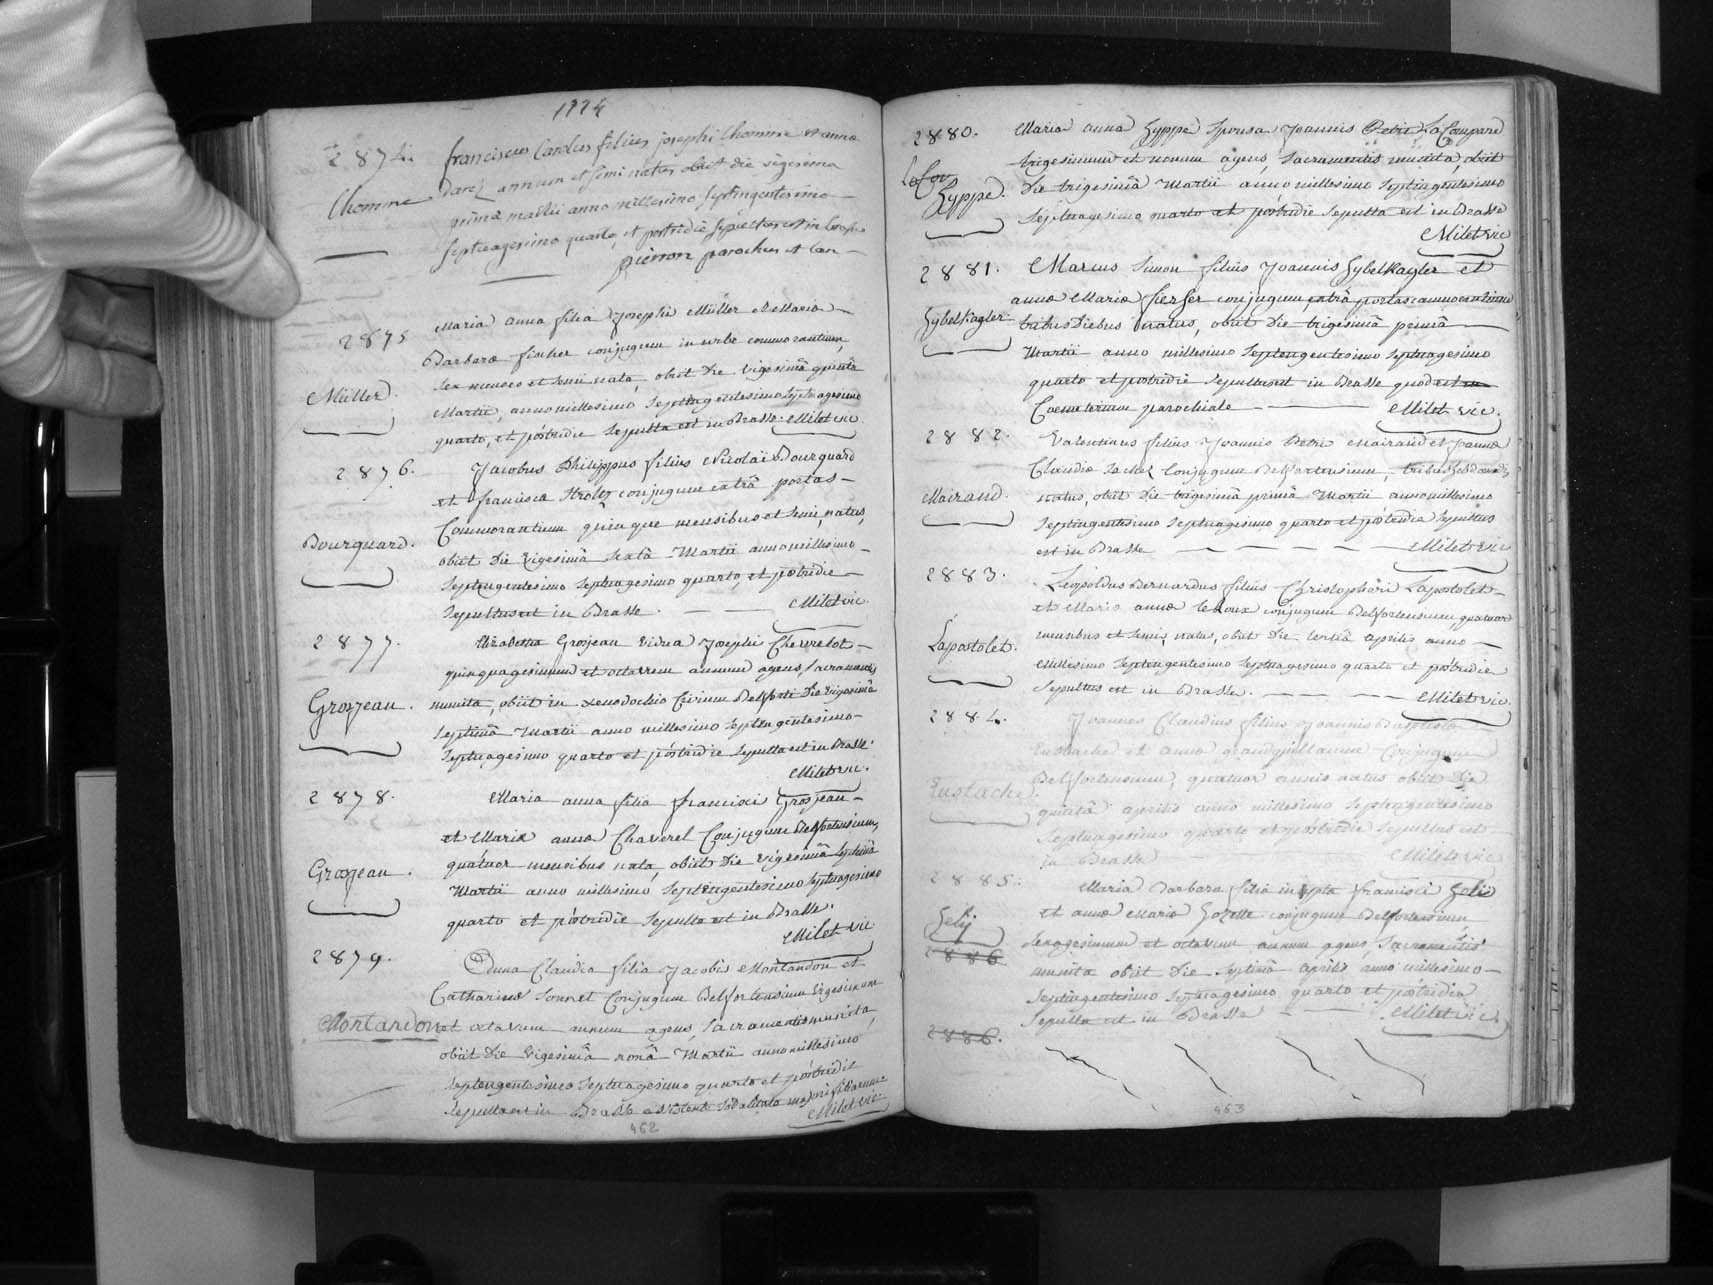 1774
2874.
franciscus Carolus filius josephi Lhomme et annæ
Lhomme
Darez annum et semi natus obiit die vigesima
prima martii anno millesimo septingentesimo
septuagesimo quarto, et postridie sepultus est in
pierron parochus et can
2875
Maria anna filia Josephi Müller et Maria
Barbaræ fischer conjugum in urbe commorantium,
Müller.
sex menses et semi nata, obiit die vigesimâ quintâ
Martii, anno millesimo septingentesimo septuagesimo
quarto, et postridie sepulta est in Brasse. Milet vic
2876.
Jacobus Philippus filius Nicolai Bourquard
et francisca Stroltz conjugum extrâ portas
Commorantium quinque mensibus et semi, natus,
Bourquard.
obiit die vigesimâ sextâ Martii anno millesimo
septingentesimo septuagesimo quarto, et postridie
sepultus est in Brasse. Milet vic.
2877.
Elisabetha Grosjean vidua Josephi Chevrelot
quinquagesimum et octavum annum agens, sacramentis
Grosjean.
munita, obiit in xenodochio Civium Belforti die vigesimâ
septimâ Martii anno millesimo septingentesimo
septuagesimo quarto et postridie sepulta est in Brasse.
Milet vic.
2878.
Maria anna filia francisci Grosjean
et Mariæ annæ Chaverel Conjugum Belfortensium,
Grosjean.
quatuor mensibus nata, obiit die vigesimâ septimâ
Martii anno millesimo septingentesimo septuagesimo
quarto et postridie sepulta est in Brasse.
Milet vic
2879.
Anna Claudia filia Jacobi Montandon et
Catharinæ Sonnet Conjugum Belfortensium vigesimum
Montandon
et octavum annum agens sacramentis munita,
obiit die vigesimâ nonâ Martii anno millesimo
septingentesimo septuagesimo quarto et postridie
sepulta est in Brasse
Milet vic
462
2880.
Maria anna Zyppe sponsa Joannis Petri La Compard
trigesimum et nonum agens, sacramentis munita, obiit
Zyppé.
die trigesimâ Martii anno millesimo septingentesimo
septuagesimo quarto et postridie sepulta est in Brasse
Milet vic
2881.
Marcus Simon filius Joannis Zybelkagler et
annæ Mariæ conjugum, extrâ portas commorantium
Zybelkagler
tribus diebus natus, obiit die trigesimâ primâ
Martii anno millesimo septingentesimo septuagesimo
quarto et postridie sepultus est in Brasse quod est
Coemeterium parochiale Milet vic.
2882.
Valentinus filius Joannis Petri Mairaud et Joannæ
Claudiæ Lachez Conjugum Belfortensium, tribus hebdomadis
Mairaud.
natus, obiit die trigesimâ primâ Martii anno millesimo
septingentesimo septuagesimo quarto et postridie sepultus
est in Brasse Milet vic
2883.
Leopoldus Bernardus filius Christophori Lapostolet
et Mariæ annæ Ledoux conjugum Belfortensium, quatuor
Lapostolet.
mensibus et semis, natus, obiit die tertiâ aprilis anno
millesimo septingentesimo septuagesimo quarto et postridie
sepultus est in Brasse. Milet vic.
2884.
Joannes Claudius filius Joannis Baptistæ
Eustache et annæ grandguillaume Conjugum
Eustache.
Belfortensium, quatuor annis natus obiit die
quintâ aprilis anno millesimo septingentesimo
septuagesimo quarto et postridie sepultus est
in Brasse Milet vic
2885.
Maria Barbara filia francisci Zeli
et annæ Mariæ conjugum Belfortensium
Zelij.
2886
sexagesimum et octavum annum agens, sacramentis
munita obiit die septimâ aprilis anno millesimo
septingentesimo septuagesimo quarto et postridie
sepulta est in Brasse Milet vic.
2886.
463